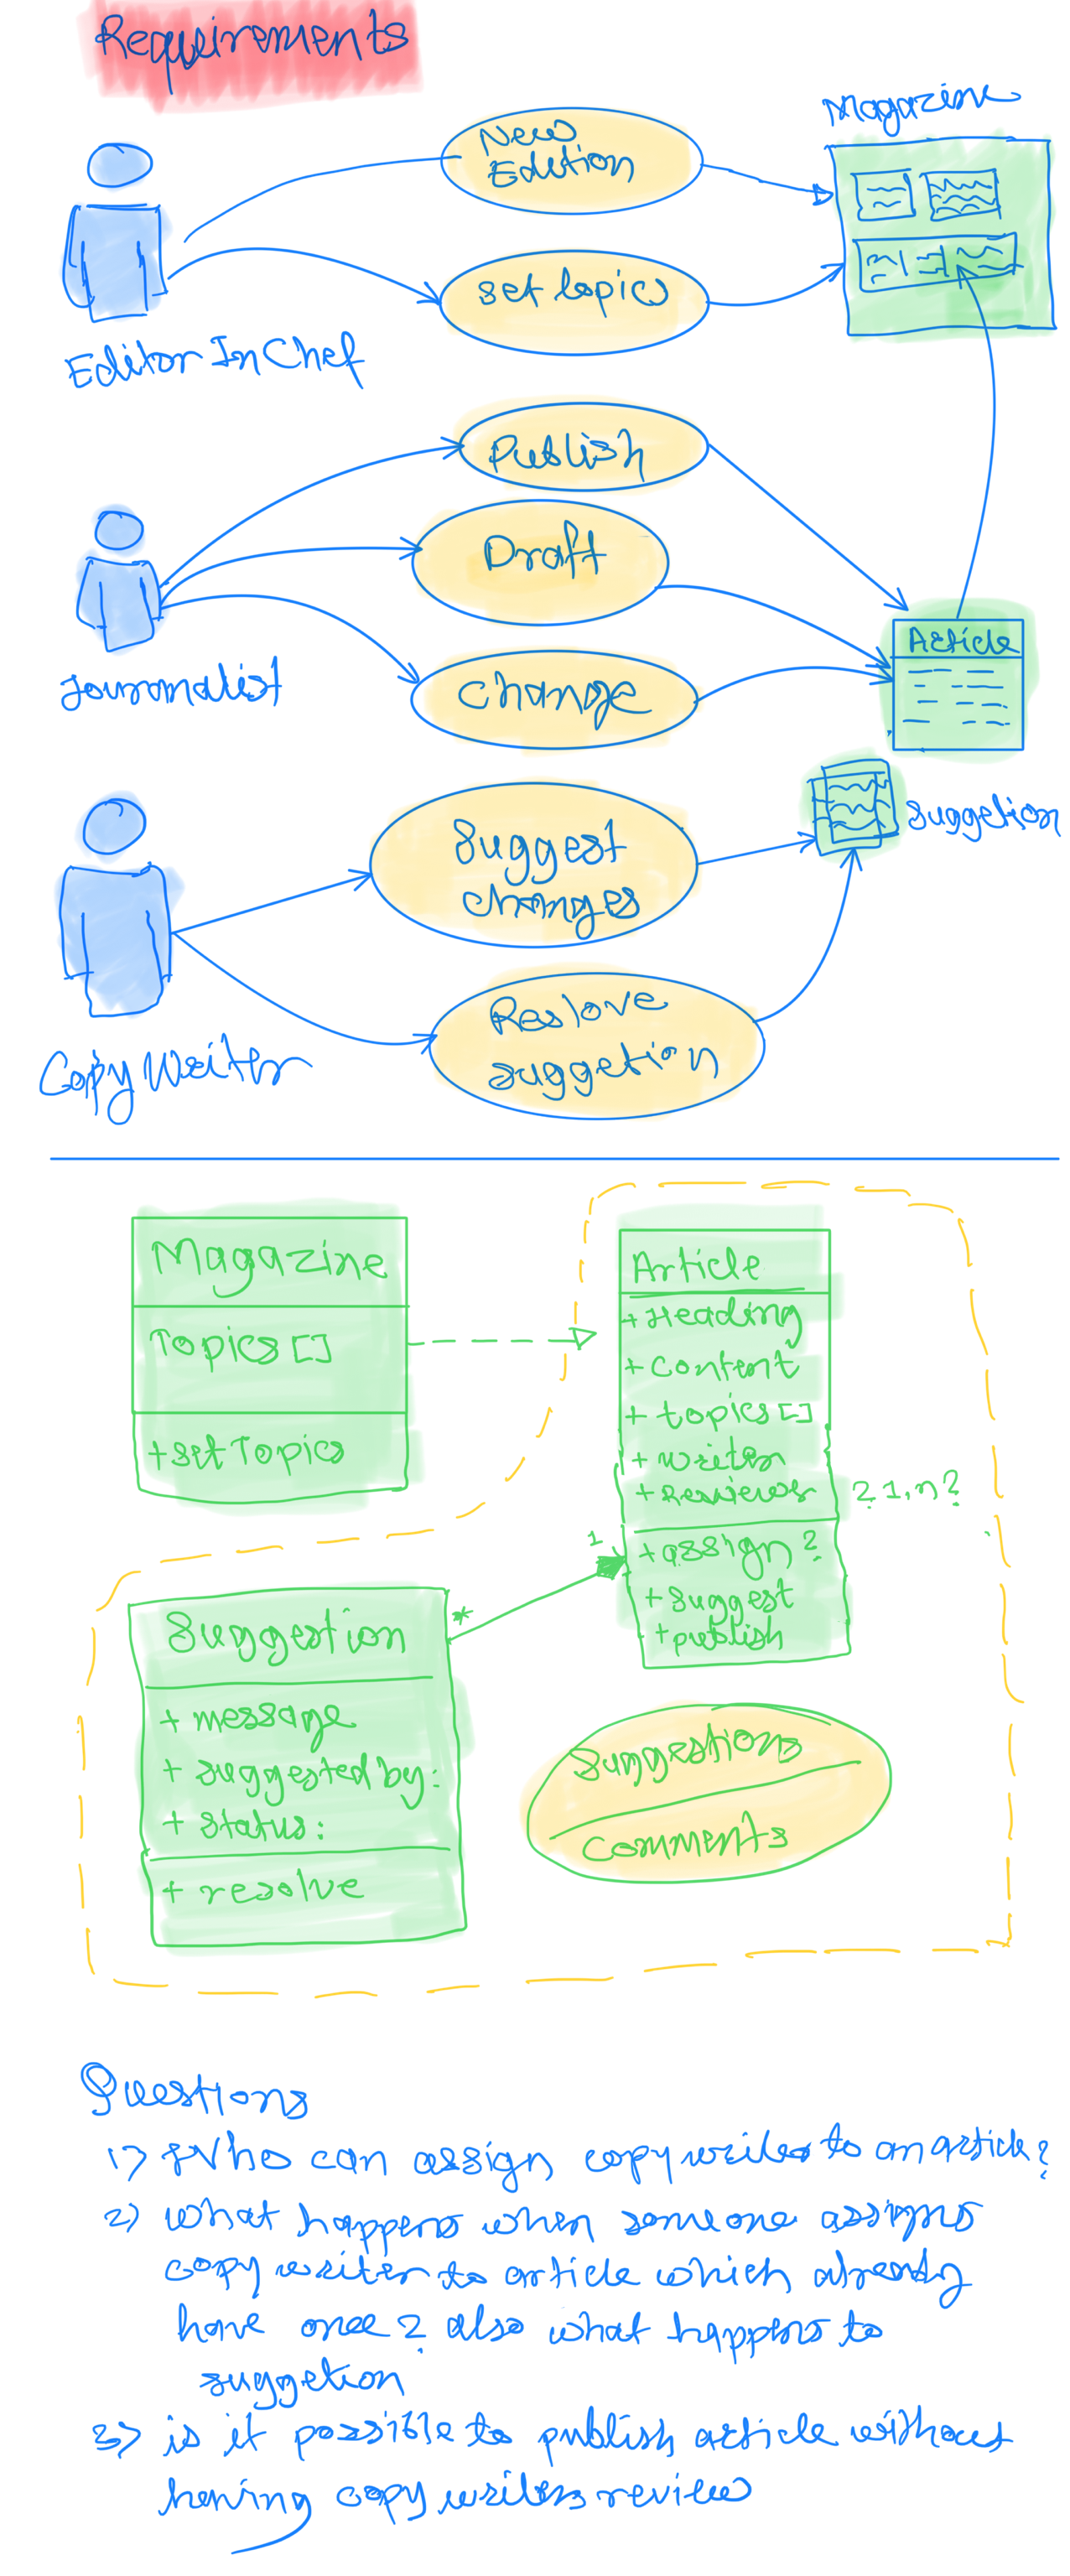 Requirements
Magazine
New
Edition
set topics
Editor In Chef
Publish
Draft
Article
Journalist
change
Suggest
changes
suggetion
Reslove
suggetion
Copy Writer
Magazine
Topics []
+setTopics
Article
+Heading
+ content
+ topics []
+ writer
+ Reviewer
? 1, n?
+assign ?
+ suggest
+ publish
1
*
Suggestion
+ message
+ suggested by:
+ status:
+ resolve
Suggestions
comments
Questions
1) Who can assign copy writer to an article?
2) what happens when someone assigns
copy writer to article which already
have one? also what happens to
suggetion
3) is it possible to publish article without
having copy writers review